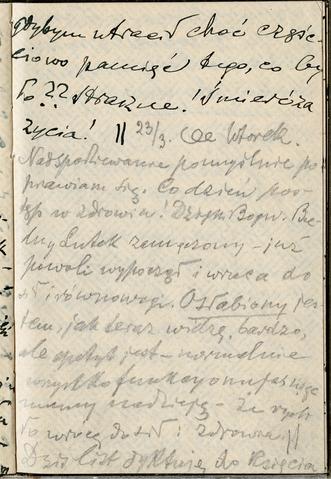 gdybym utracił choć częś-
ciowo pamięć tego, co by
ło?? Straszne! Śmierć za
życia! || 23/3. Wtorek.
Nadspodziewanie pomyślnie po
prawiam się. Co dzień pos-
tęp w zdrowiu! Dzięki Bogu. Bie-
dny Lutek zemęczony – już
powoli wypoczął i wraca do
sił i równowagi. Osłabiony jes-
tem, jak teraz widzę, bardzo,
ale apetyt jest – normalnie
wszystko funkcyonuje
mamy nadzieję – że rych
ło wrócę do sił i zdrowia ||
Dziś list dyktuję do Księcia